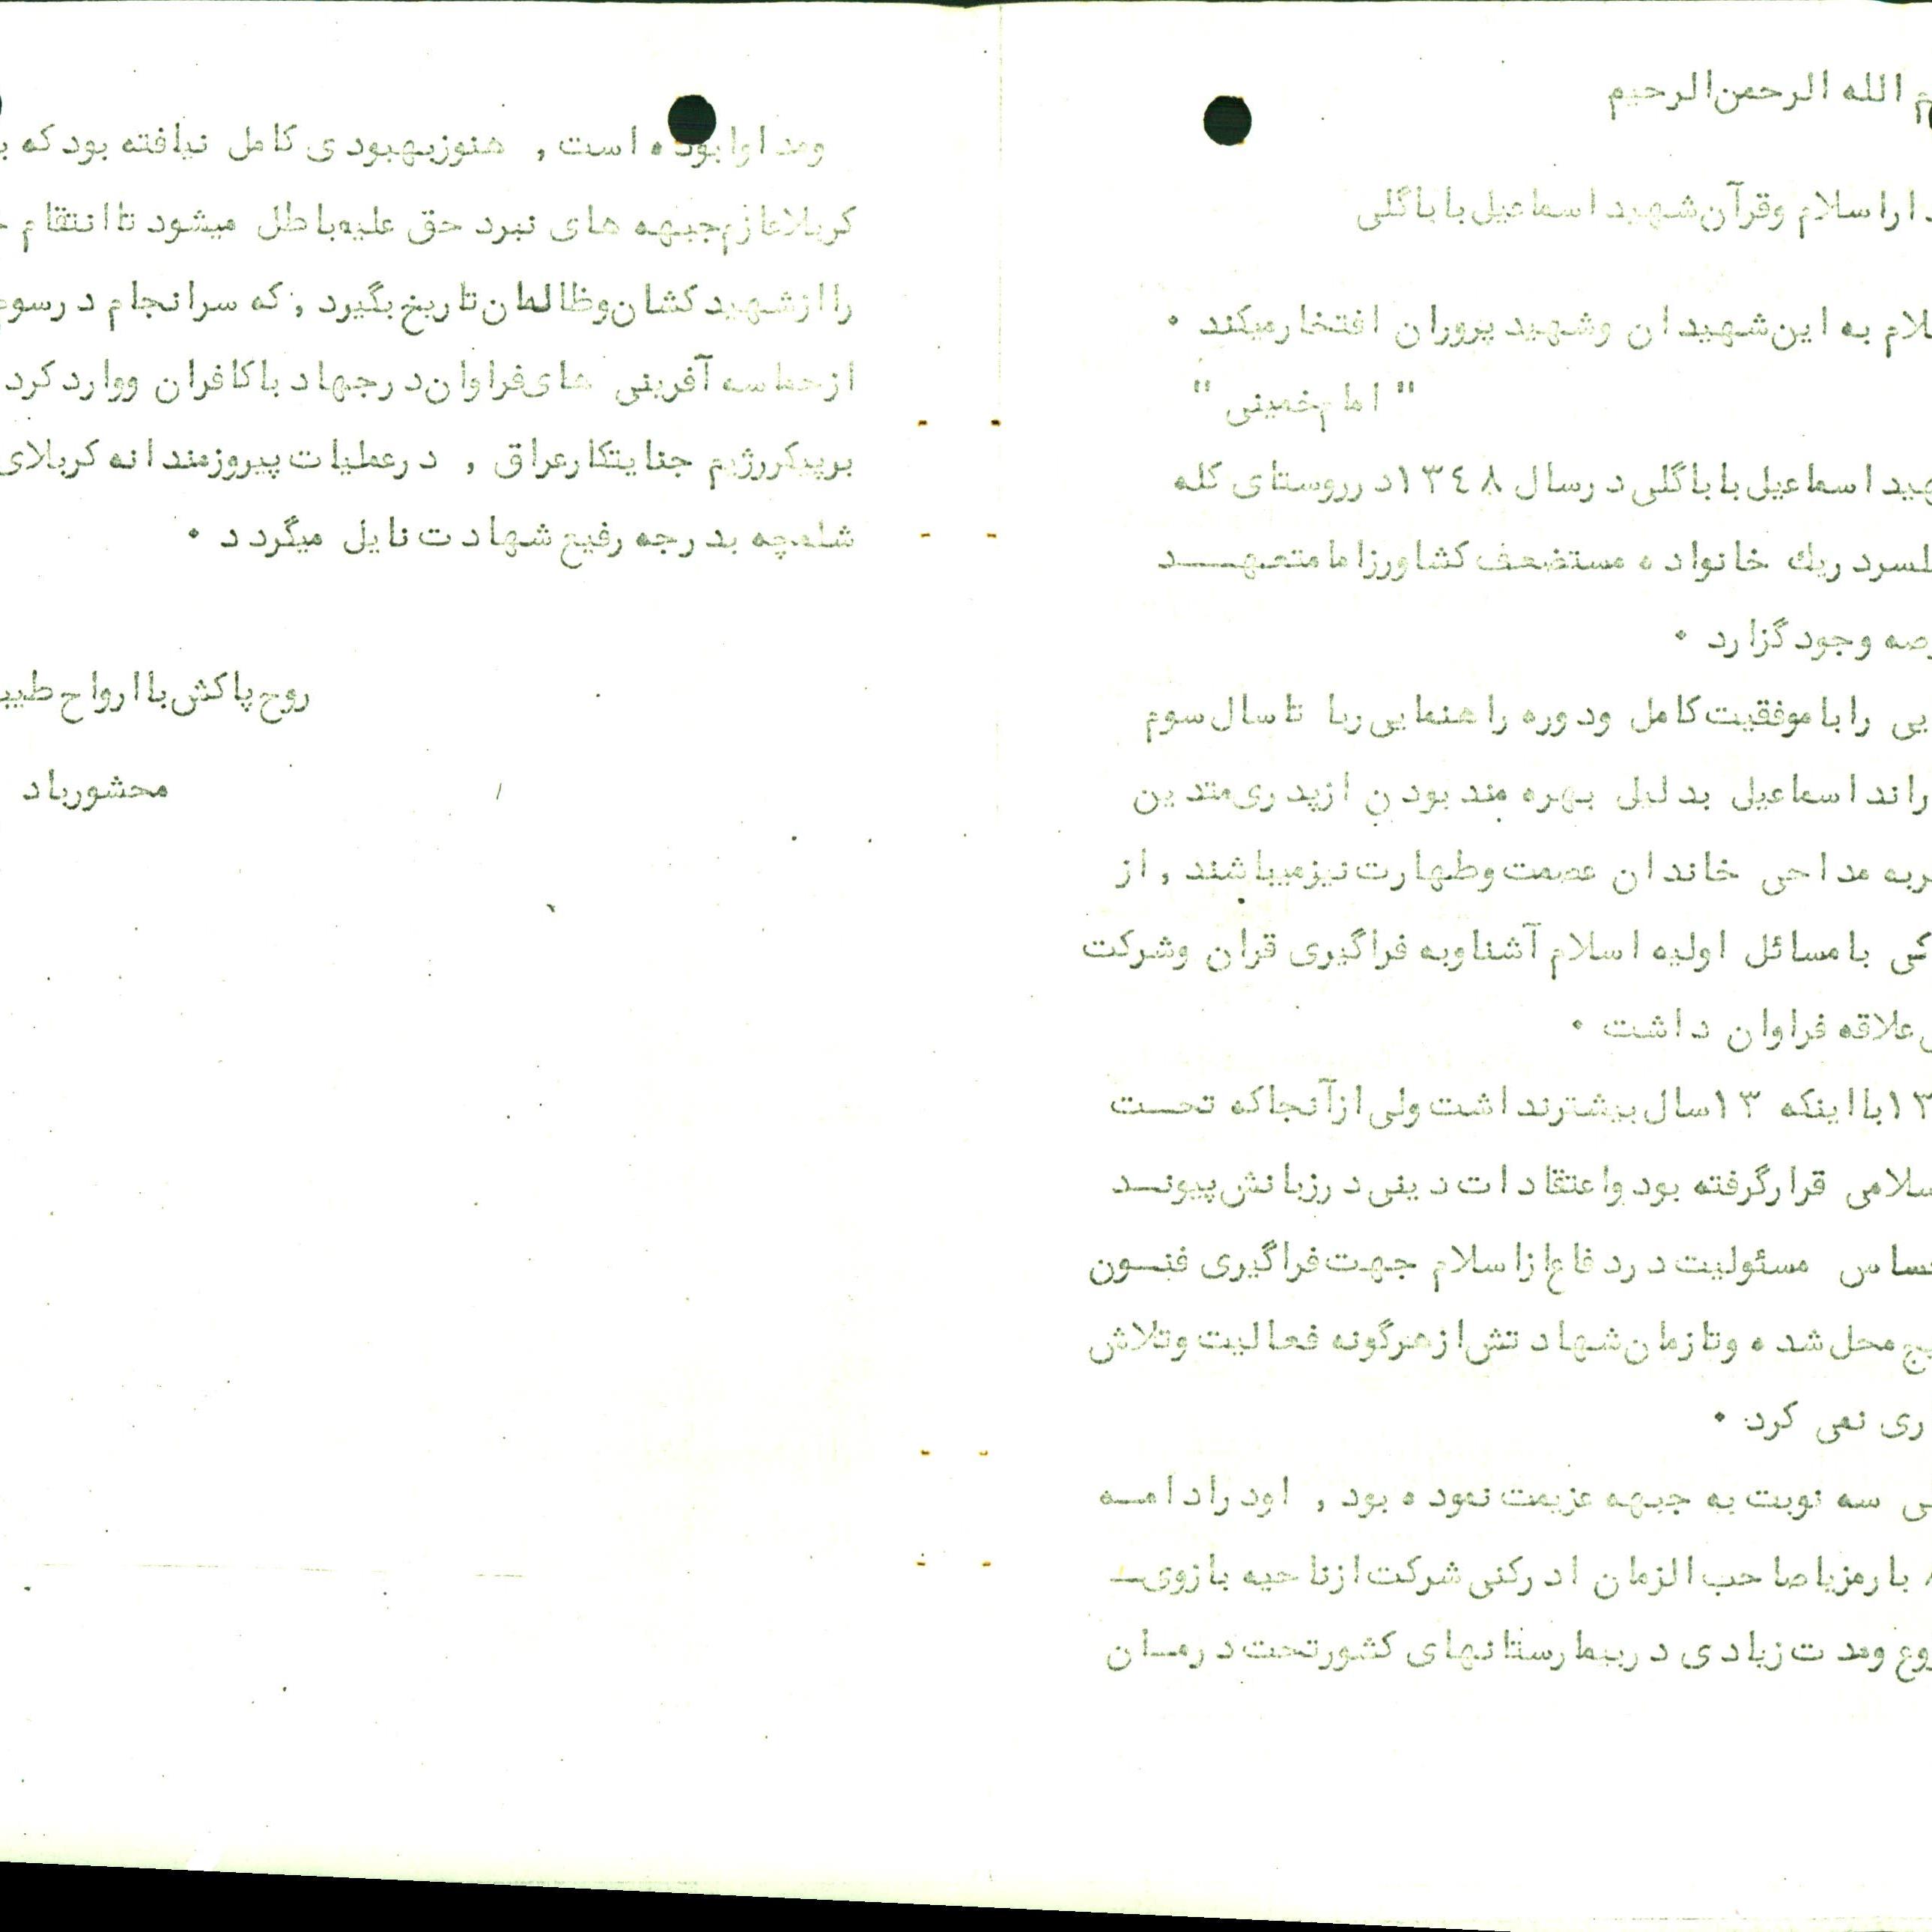 الله الرحمن الرحیم
اسلام وقرآن شهید اسماعیل باباگلی
به این شهیدان وشهید پروران افتخارمیکند ۰
" امام خمینی "
اسماعیل باباگلی درسال ۱۳٤۸ درروستای کله
دریك خانواده مستضعف کشاورزاما متعهد
وجود گزارد ۰
را با موفقیت کامل ودوره راهنمایی را تا سال سوم
اسماعیل بدلیل بهره مند بودن ازپدری متدین
مداحی خاندان عصمت وطهارت نیزمیباشند , از
با مسائل اولیه اسلام آشنا وبه فراگیری قران وشرکت
علاقه فراوان داشت ۰
با اینکه ۱۳ سال بیشترنداشت ولی ازآنجاکه تحت
قرارگرفته بود واعتقادات دینی درزبانش پیوند
مسئولیت دردفاع ازاسلام جهت فراگیری فنون
محل شده وتا زمان شهادتش ازهرگونه فعالیت وتلاش
نمی کرد ۰
سه نوبت به جبهه عزیمت نموده بود , اودرادامه
با رمزیاصاحب الزمان ادرکنی شرکت ازناحیه بازوی
ومدت زیادی دربیمارستانهای کشورتحت درمان
ومداوا بوده است , هنوزبهبودی کامل نیافته بود که
کربلا عازم جبهه های نبرد حق علیه باطل میشود تا انتقام
را ازشهید کشان وظالمان تاریخ بگیرد , که سرانجام
ازحماسه آفرینی های فراوان درجهاد با کافران ووارد کرد
برپیکررژیم جنایتکارعراق , درعملیات پیروزمندانه کربلای
شلمچه بدرجه رفیع شهادت نایل میگردد ۰
روح پاکش با ارواح
محشورباد